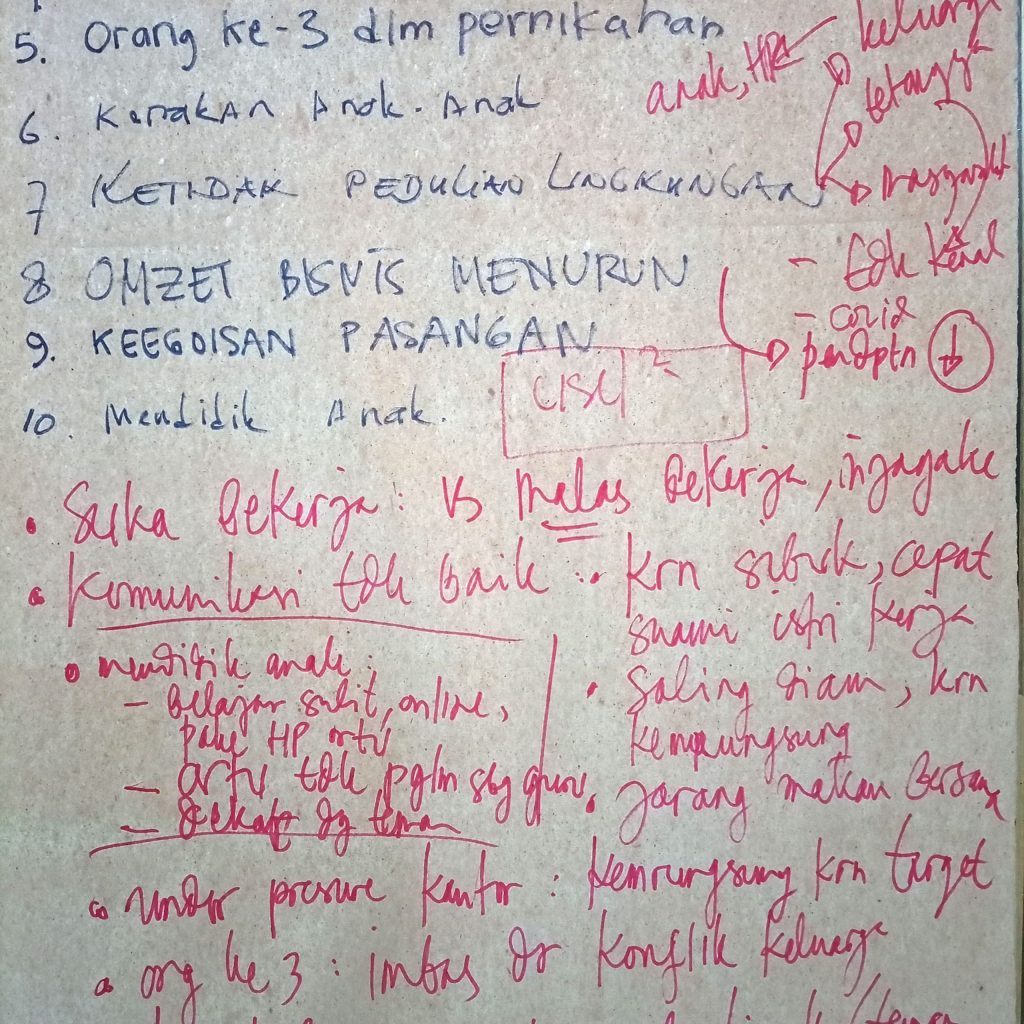 5. Orang ke-3 dlm pernikahan
keluarga
anak, HP
tetangga
6. KENAKALAN ANAK-ANAK
7 KETIDAK PEDULIAN LINGKUNGAN
masyarakat
- tdk kenal
8 OMZET BISNIS MENURUN
- covid
pendptn ↓
9. KEEGOISAN PASANGAN
10. Mendidik Anak.
• Suka bekerja: vs malas bekerja, injagake
• Komunikasi tdk baik :
• krn sibuk, cepat
suami istri kerja
• saling diam, krn
kemrungsung
• jarang makan bersama
• mendidik anak:
- belajar sulit, online,
pake HP ortu
- ortu tdk pglm sbg guru
- dekat dg teman
• under presure kantor : kemrungsung krn target
• org ke 3 : imbas dr konflik keluarga